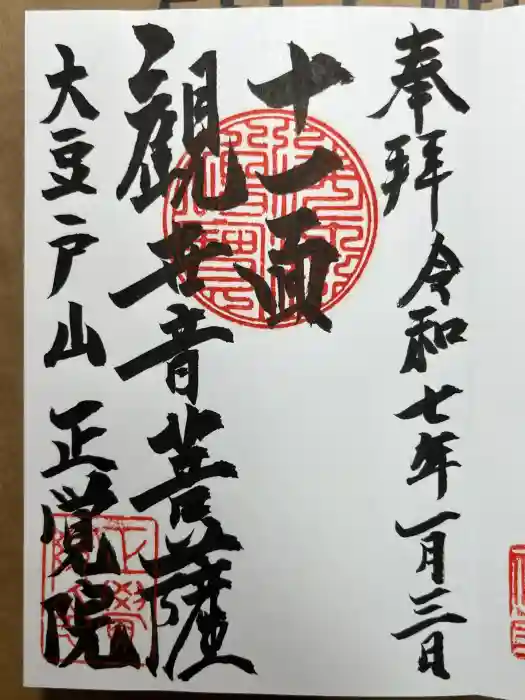 奉拝 令和七年一月三日
十一面
観世音菩薩
大豆戸山 正覚院